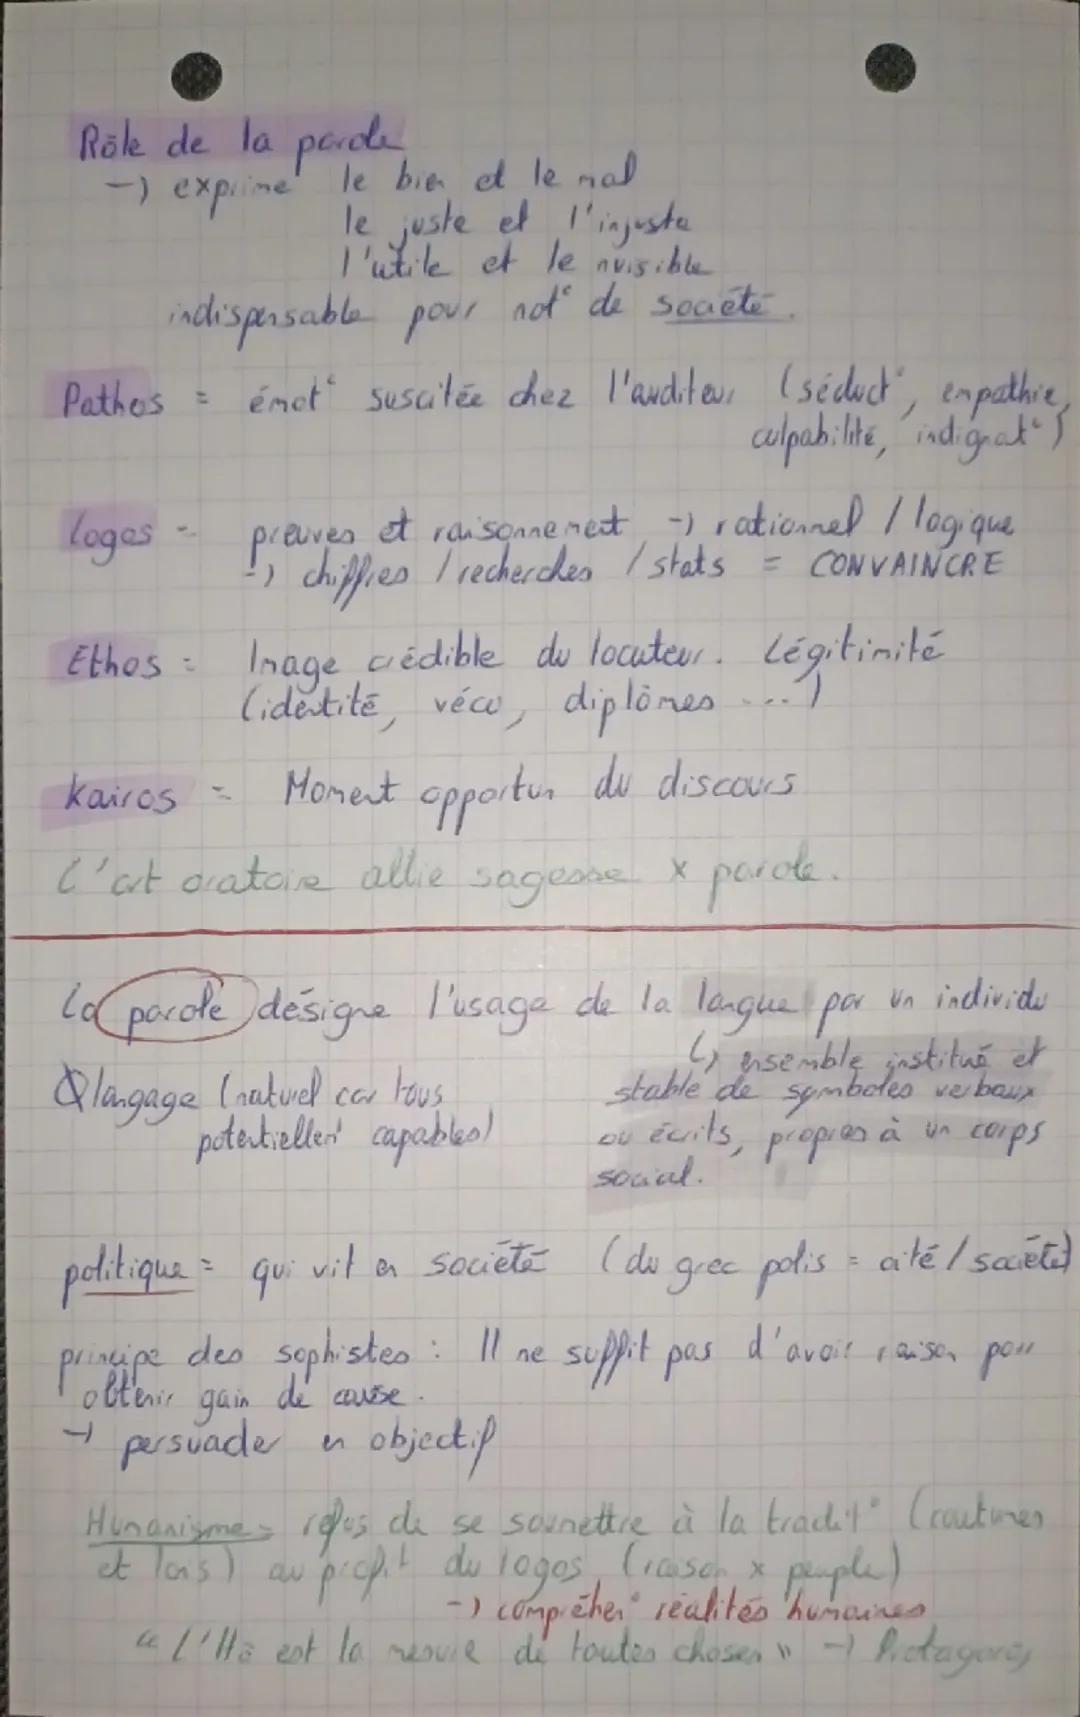 Rôle de la parole
-) exprime le bien et le mal
le juste et l'injuste
l'utile et le nuisible
indispensable pour not° de société.
Pathos = émot° suscitée chez l'auditeur (séduct°, empathie,
culpabilité, indignat°)
Logos = preuves et raisonnement -) rationnel / logique
-) chiffres / recherches / stats = CONVAINCRE
Ethos = Image crédible du locuteur. Légitimité
(identité, vécu, diplômes ...)
Kairos = Moment opportun du discours
L'art oratoire allie sagesse x parole.
La parole désigne l'usage de la langue par un individu
↳ ensemble institué et
stable de symboles verbaux
ou écrits, propres à un corps
social.
langage (naturel car tous
potentiellem' capables)
politique = qui vit en société (du grec polis = cité / société)
principe des sophistes : Il ne suffit pas d'avoir raison pour
obtenir gain de cause.
→ persuader en objectif
Humanisme = refus de se soumettre à la tradit° (coutumes
et lois) au profit du logos (raison x peuple)
-) compréhen° réalités humaines
"L'H° est la mesure de toutes choses" -) Protagoras